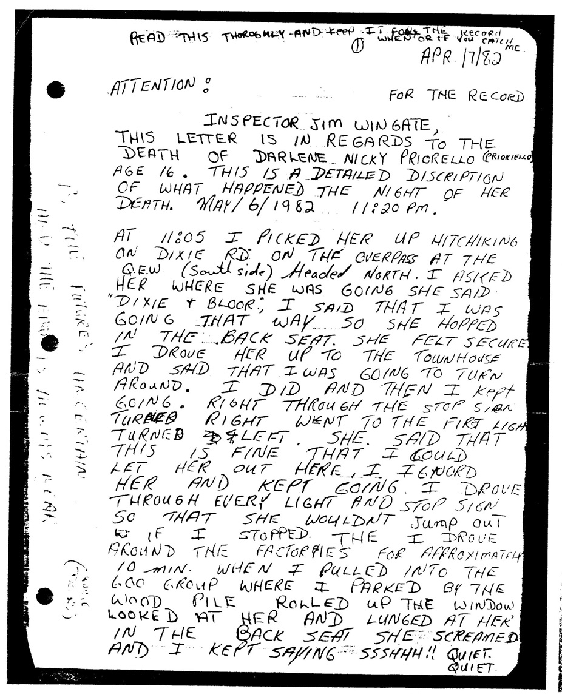 READ THIS THOROUGHLY AND KEEP IT FOR THE RECORD
WHEN OR IF YOU CATCH ME.
①
APR /7/82
ATTENTION:
FOR THE RECORD
INSPECTOR JIM WINGATE,
THIS LETTER IS IN REGARDS TO THE
DEATH OF DARLENE NICKY PRIORELLO (PRIORIELLO)
AGE 16. THIS IS A DETAILED DISCRIPTION
OF WHAT HAPPENED THE NIGHT OF HER
DEATH. MAY/6/1982 11:20 PM.
AT 11:05 I PICKED HER UP HITCHIKING
ON DIXIE RD. ON THE OVERPASS AT THE
QEW (South side) Headed NORTH. I ASKED
HER WHERE SHE WAS GOING SHE SAID
"DIXIE & BLOOR", I SAID THAT I WAS
GOING THAT WAY SO SHE HOPPED
IN THE BACK SEAT. SHE FELT SECURE
I DROVE HER UP TO THE TOWNHOUSE
AND SAID THAT I WAS GOING TO TURN
AROUND. I DID AND THEN I KEPT
GOING. RIGHT THROUGH THE STOP SIGN
TURNED RIGHT WENT TO THE FIRST LIGHT
TURNED LEFT. SHE SAID THAT
THIS IS FINE THAT I COULD
LET HER OUT HERE, I IGNORD
HER AND KEPT GOING. I DROVE
THROUGH EVERY LIGHT AND STOP SIGN
SO THAT SHE WOULDNT Jump OUT
IF I STOPPED. THE I DROVE
AROUND THE FACTORRIES FOR APPROXIMATELY
10 MIN. WHEN I PULLED INTO THE
GCO GROUP WHERE I PARKED BY THE
WOOD PILE ROLLED UP THE WINDOW
LOOKED AT HER AND LUNGED AT HER
IN THE BACK SEAT SHE SCREAMED
AND I KEPT SAYING SSSHHH!! QUIET
QUIET
THE FUTURE'S UNCERTAIN
AND THE END IS ALWAYS NEAR